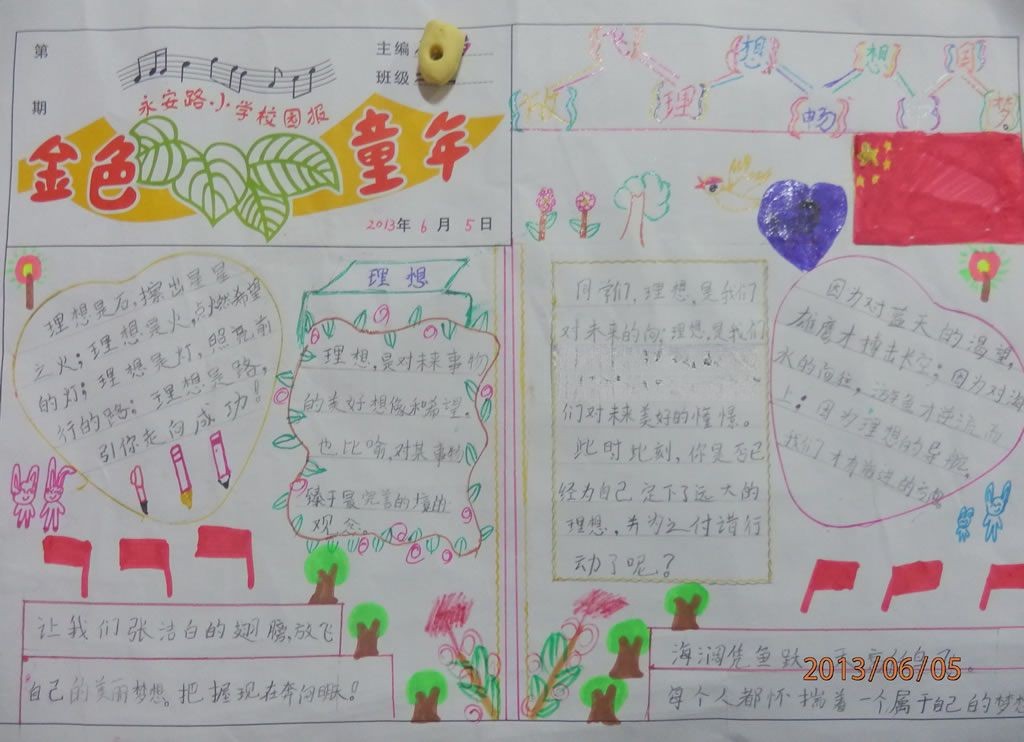 第
期
主编
班级
永安路小学校园报
金色童年
2013年 6 月 5 日
理想是石,擦出星星
之火;理想是火,点燃希望
的灯;理想是灯,照亮前
行的路;理想是路,
引你走向成功!
理想
理想,是对未来事物
的美好想像和希望。
也比喻,对某事物
臻于最完善的境的
观念。
让我们张洁白的翅膀,放飞
自己的美丽梦想。把握现在奔向明天!
理 想 畅 想 国 梦。
同学们,理想,是我们
对未来的向;理想,是我们
们对未来美好的憧憬。
此时此刻,你是否已
经为自己定下了远大的
理想,并为之付诸行
动了呢?
因为对蓝天的渴望,
雄鹰才搏击长空;因为对海
水的,游鱼才逆流而
上;因为理想的导航,
我们才有前进的方
海阔凭鱼跃
每个人都怀揣着一个属于自己的梦想
2013/06/05